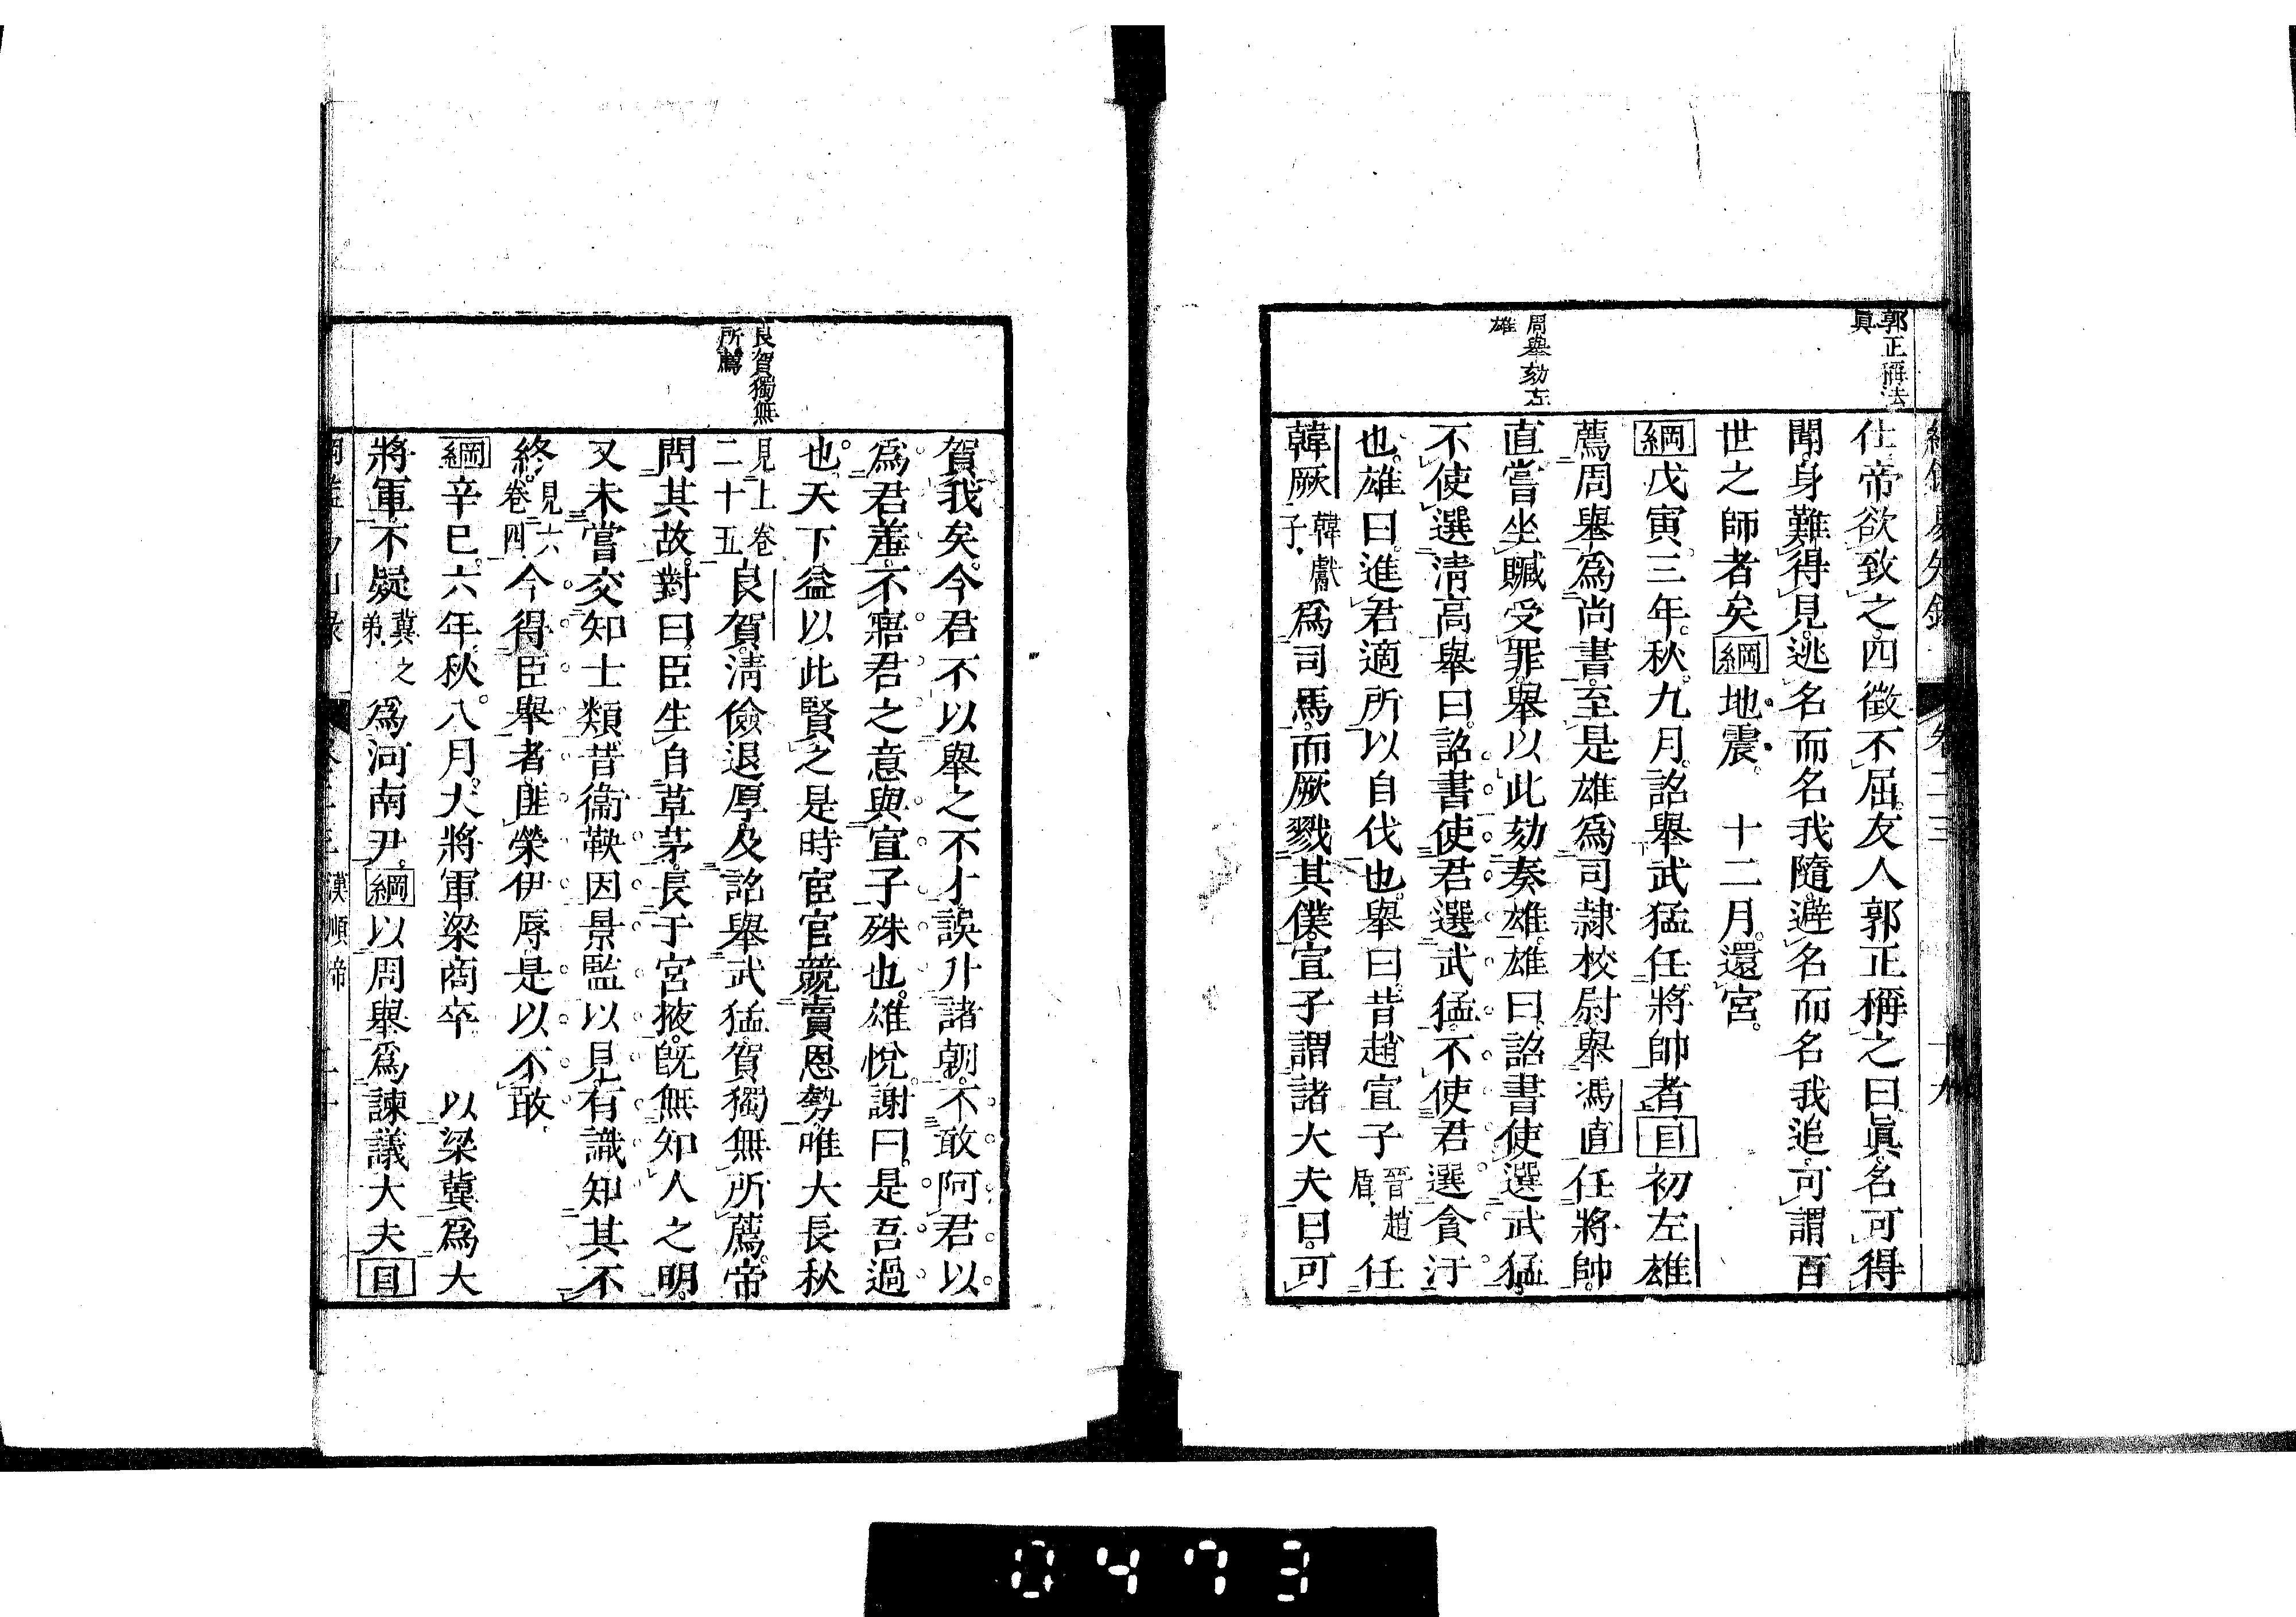 郭正稱法
眞
周舉劾左
雄
仕帝欲致之四徵不屈友人郭正稱之曰眞名可得
聞身難得見逃名而名我隨避名而名我追可謂百
世之師者矣綱地震 十二月還宮
綱戊寅三年秋九月詔舉武猛任將帥者目初左雄
薦周舉爲尚書至是雄爲司隷校尉舉馮直任將帥
直嘗坐贓受罪舉以此劾奏雄雄曰詔書使選武猛
不使選淸高舉曰詔書使君選武猛不使君選貪汙
也雄曰進君適所以自伐也舉曰昔趙宣子晉趙盾任
韓厥韓獻子爲司馬而厥戮其僕宣子謂諸大夫曰可
良賀獨無
所薦
賀我矣今君不以舉之不才誤升諸朝不敢阿君以
爲君羞不寤君之意與宣子殊也雄悅謝曰是吾過
也天下益以此賢之是時宦官競賣恩勢唯大長秋
見上卷二十五良賀淸儉退厚及詔舉武猛賀獨無所薦帝
問其故對曰臣生自草茅長于宮掖旣無知人之明
又未嘗交知士類昔衞鞅因景監以見有識知其不
終見六卷四今得臣舉者匪榮伊辱是以不敢
綱辛巳六年秋八月大將軍梁商卒 以梁冀爲大
將軍不疑冀之弟爲河南尹綱以周舉爲諫議大夫目
漢順帝
0473